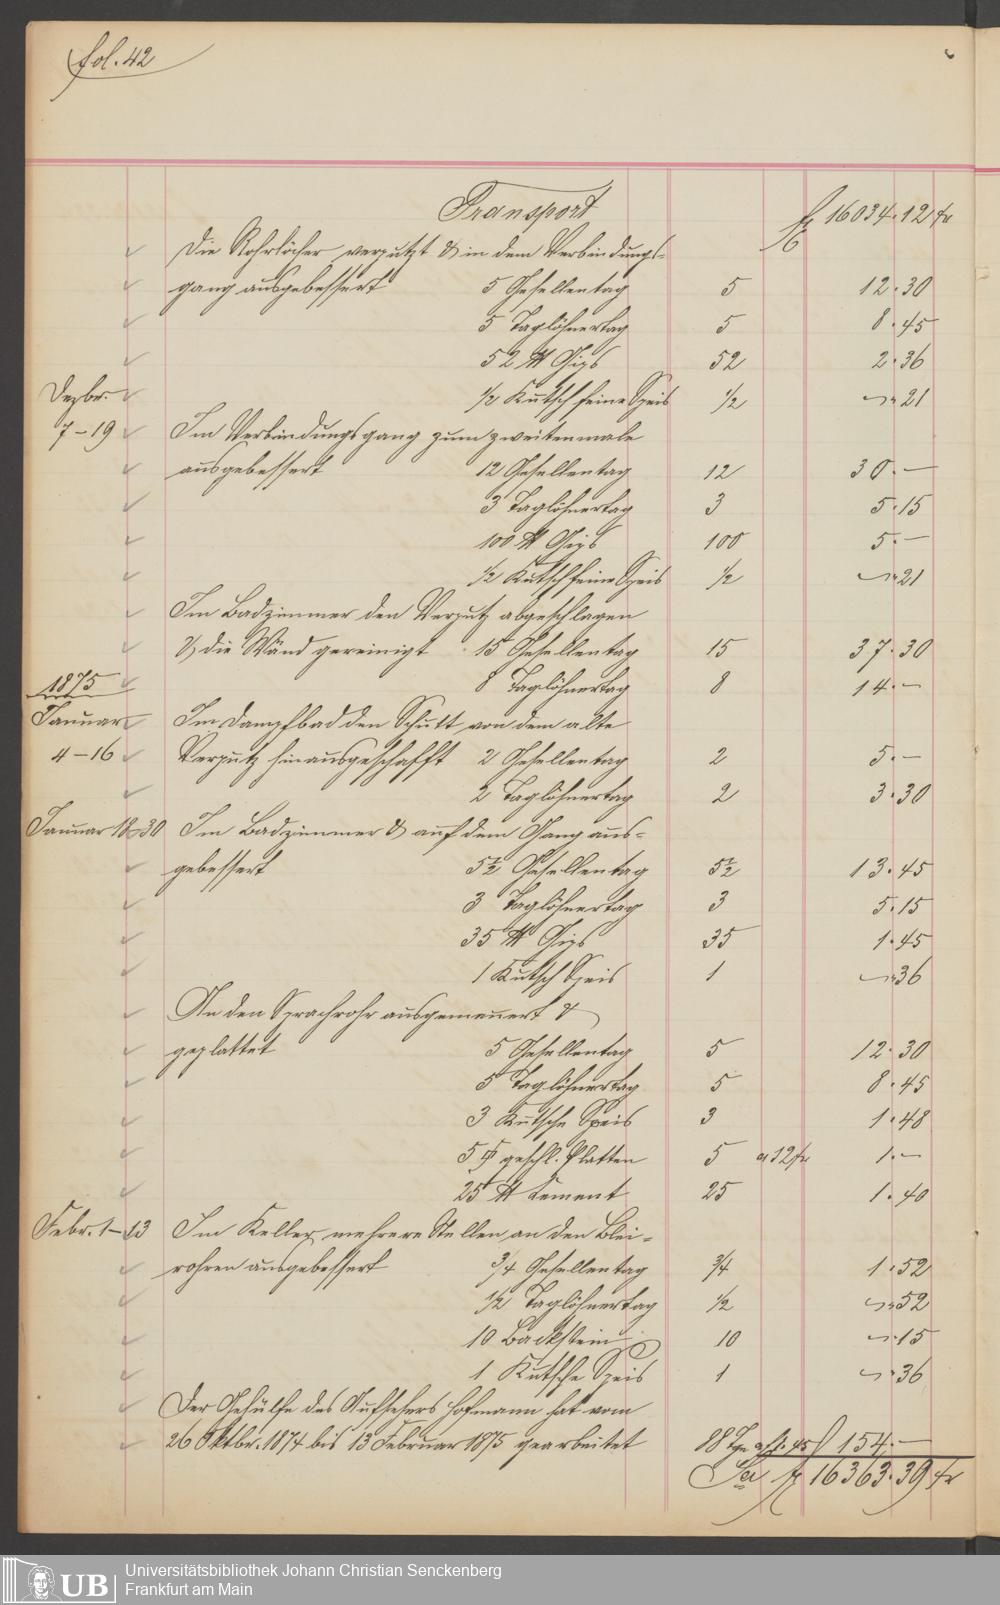 fol. 42
Transport fl 16034.12 kr
Die Rohrlöcher verputzt & in dem Verbindungs-
gang ausgebessert 5 Gesellentag 5 12.30
5 Taglöhnertag 5 8.45
52 ℔ Gips 52 2.36
Dezbr. ½ Kutsch feine Speis ½ 21
7-19 Im Verbindungsgang zum zweitenmale
ausgebessert 12 Gesellentag 12 30.—
3 Taglöhnertag 3 5.15
100 ℔ Gips 100 5.—
½ Kutsch feine Speis ½ 21
Im Badzimmer den Verputz abgeschlagen
& die Wänd gereinigt 15 Gesellentag 15 37.30
1875 8 Taglöhnertag 8 14.—
Januar Im Dampfbad den Schutt von dem alte
4-16 Verputz hinausgeschafft 2 Gesellentag 2 5.—
2 Taglöhnertag 2 3.30
Januar 18-30 Im Badzimmer & auf dem Gang aus-
gebessert 5½ Gesellentag 5½ 13.45
3 Taglöhnertag 3 5.15
35 ℔ Gips 35 1.45
1 Kutsch Speis 1 36
An den Sprachrohr ausgemauert &
geplattet 5 Gesellentag 5 12.30
5 Taglöhnertag 5 8.45
3 Kutsche Speis 3 1.48
5 geschl. Platten 5 a 12 kr 1.—
25 ℔ Cement 25 1.40
Febr. 1-13 Im Keller mehrere Stellen an den Blei-
rohren ausgebessert ¾ Gesellentag ¾ 1.52
½ Taglöhnertag ½ 52
10 Backstein 10 15
1 Kutsche Speis 1 36
Der Gehülfe des Aufsehers Hofmann hat vom
26 Oktbr. 1874 bis 13 Februar 1875 gearbeitet 88 Tge a fl. 1.45 fl 154.—
Sa fl 16363.39 kr
UB Universitätsbibliothek Johann Christian Senckenberg
Frankfurt am Main